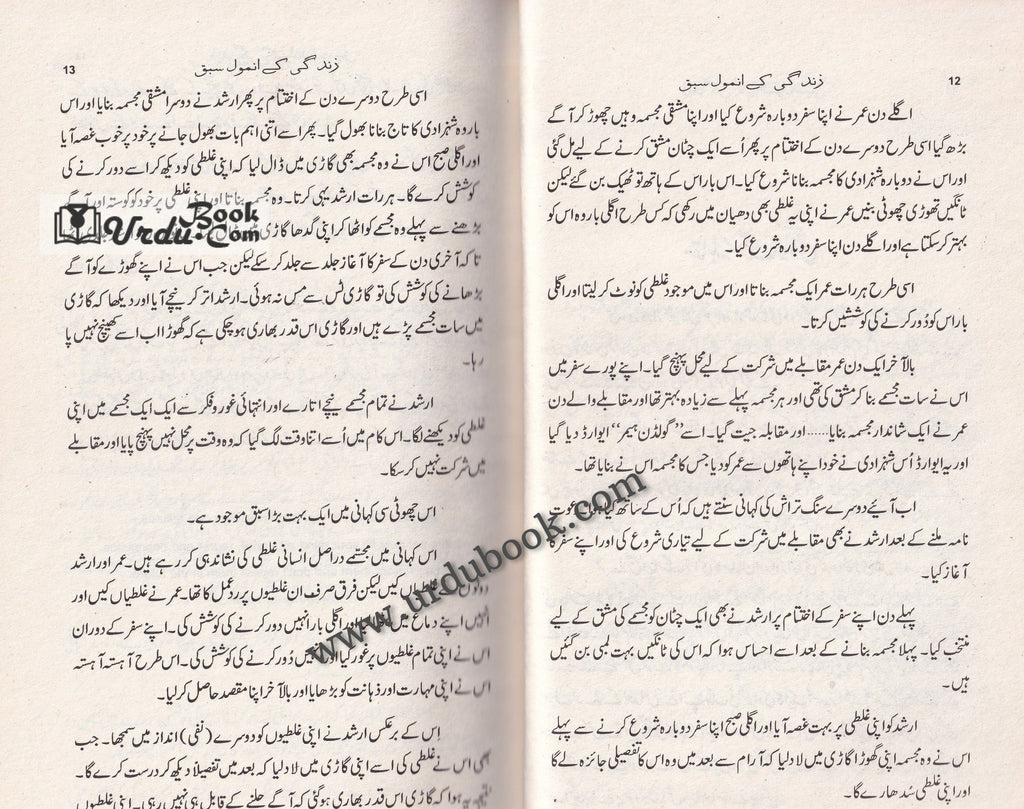 12
زندگی کے انمول سبق
اگلے دن عمر نے اپنا سفر دوبارہ شروع کیا اور اپنا مشقی مجسمہ وہیں چھوڑ کر آگے
بڑھ گیا اسی طرح دوسرے دن کے اختتام پر پھر اُسے ایک چٹان مشق کرنے کے لیے مل گئی
اور اس نے دوبارہ شہزادی کا مجسمہ بنانا شروع کیا۔ اس بار اس کے ہاتھ تو ٹھیک بن گئے لیکن
ٹانگیں تھوڑی چھوٹی بنیں عمر نے اپنی یہ غلطی بھی دھیان میں رکھی کہ کس طرح اگلی بار وہ اس کو
بہتر کر سکتا ہے اور اگلے دن اپنا سفر دوبارہ شروع کیا۔
اسی طرح ہر رات عمر ایک مجسمہ بناتا اور اس میں موجود غلطی کو نوٹ کر لیتا اور اگلی
بار اس کو دُور کرنے کی کوششیں کرتا۔
بالآخر ایک دن عمر مقابلے میں شرکت کے لیے محل پہنچ گیا۔ اپنے پورے سفر میں
اس نے سات مجسمے بنا کر مشق کی تھی اور ہر مجسمہ پہلے سے زیادہ بہتر تھا اور مقابلے والے دن
عمر نے ایک شاندار مجسمہ بنایا...... اور مقابلہ جیت گیا۔ اسے ”گولڈن ہیمر“ ایوارڈ دیا گیا
اور یہ ایوارڈ اُس شہزادی نے خود اپنے ہاتھوں سے عمر کو دیا جس کا مجسمہ اس نے بنایا تھا۔
اب آئیے دوسرے سنگ تراش کی کہانی سنتے ہیں کہ اُس کے ساتھ کیا ہوا دعوت
نامہ ملنے کے بعد ارشد نے بھی مقابلے میں شرکت کے لیے تیاری شروع کی اور اپنے سفر کا
آغاز کیا۔
پہلے دن اپنے سفر کے اختتام پر ارشد نے بھی ایک چٹان کو مجسمے کی مشق کے لیے
منتخب کیا۔ پہلا مجسمہ بنانے کے بعد اسے احساس ہوا کہ اس کی ٹانگیں بہت لمبی بن گئیں
ہیں۔
ارشد کو اپنی غلطی پر بہت غصہ آیا اور اگلی صبح اپنا سفر دوبارہ شروع کرنے سے پہلے
اس نے وہ مجسمہ اپنی گھوڑا گاڑی میں لاد لیا کہ آرام سے بعد میں وہ اس کا تفصیلی جائزہ لے گا
اور اپنی غلطی سُدھارے گا۔
13
زندگی کے انمول سبق
اسی طرح دوسرے دن کے اختتام پر پھر ارشد نے دوسرا مشقی مجسمہ بنایا اور اس
بار وہ شہزادی کا تاج بنانا بھول گیا۔ پھر اسے اتنی اہم بات بھول جانے پر خود پر خوب غصہ آیا
اور اگلی صبح اس نے وہ مجسمہ بھی گاڑی میں ڈال لیا کہ اپنی غلطی کو دیکھ کر اسے دور کرنے کی
کوشش کرے گا۔ ہر رات ارشد یہی کرتا۔ وہ مجسمہ بناتا اور اپنی غلطی پر خود کو کوستا اور آگے
بڑھنے سے پہلے وہ مجسمے کو اٹھا کر اپنی گدھا گاڑی
تا کہ آخری دن کے سفر کا آغاز جلد سے جلد کر سکے لیکن جب اس نے اپنے گھوڑے کو آگے
بڑھانے کی کوشش کی تو گاڑی ٹس سے مس نہ ہوئی۔ ارشد اتر کر نیچے آیا اور دیکھا کہ گاڑی
میں سات مجسمے پڑے ہیں اور گاڑی اس قدر بھاری ہو چکی ہے کہ گھوڑا اب اسے کھینچ نہیں پا
رہا۔
ارشد نے تمام مجسمے نیچے اتارے اور انتہائی غور و فکر سے ایک ایک مجسمے میں اپنی
غلطی کو دیکھنے لگا۔ اس کام میں اُسے اتنا وقت لگ گیا کہ وہ وقت پر محل نہیں پہنچ پایا اور مقابلے
میں شرکت نہیں کر سکا۔
اس چھوٹی سی کہانی میں ایک بہت بڑا سبق موجود ہے۔
اس کہانی میں مجسّمے دراصل انسانی غلطی کی نشاندہی کر رہے ہیں۔ عمر اور ارشد
دونوں غلطیاں کیں لیکن فرق صرف ان غلطیوں پر ردِّعمل کا تھا۔ عمر نے غلطیاں کیں اور
انہیں اپنے دماغ میں اور اگلی بار انہیں دور کرنے کی کوشش کی۔ اپنے سفر کے دوران
اس نے اپنی تمام غلطیوں پر غور کیا اور انہیں دُور کرنے کی کوشش کی۔ اس طرح آہستہ آہستہ
اس نے اپنی مہارت اور ذہانت کو بڑھایا اور بالآخر اپنا مقصد حاصل کر لیا۔
اِس کے برعکس ارشد نے اپنی غلطیوں کو دوسرے (نفی) انداز میں سمجھا۔ جب
بھی اس نے غلطی کی اسے اپنی گاڑی میں لاد لیا کہ بعد میں تفصیلاً دیکھ کر درست کرے گا۔
نتیجہ یہ ہوا کہ گاڑی اس قدر بھاری ہو گئی کہ آگے چلنے کے قابل ہی نہیں رہی۔ اپنی غلطیوں
UrduBook.Com
www.urdubook.com